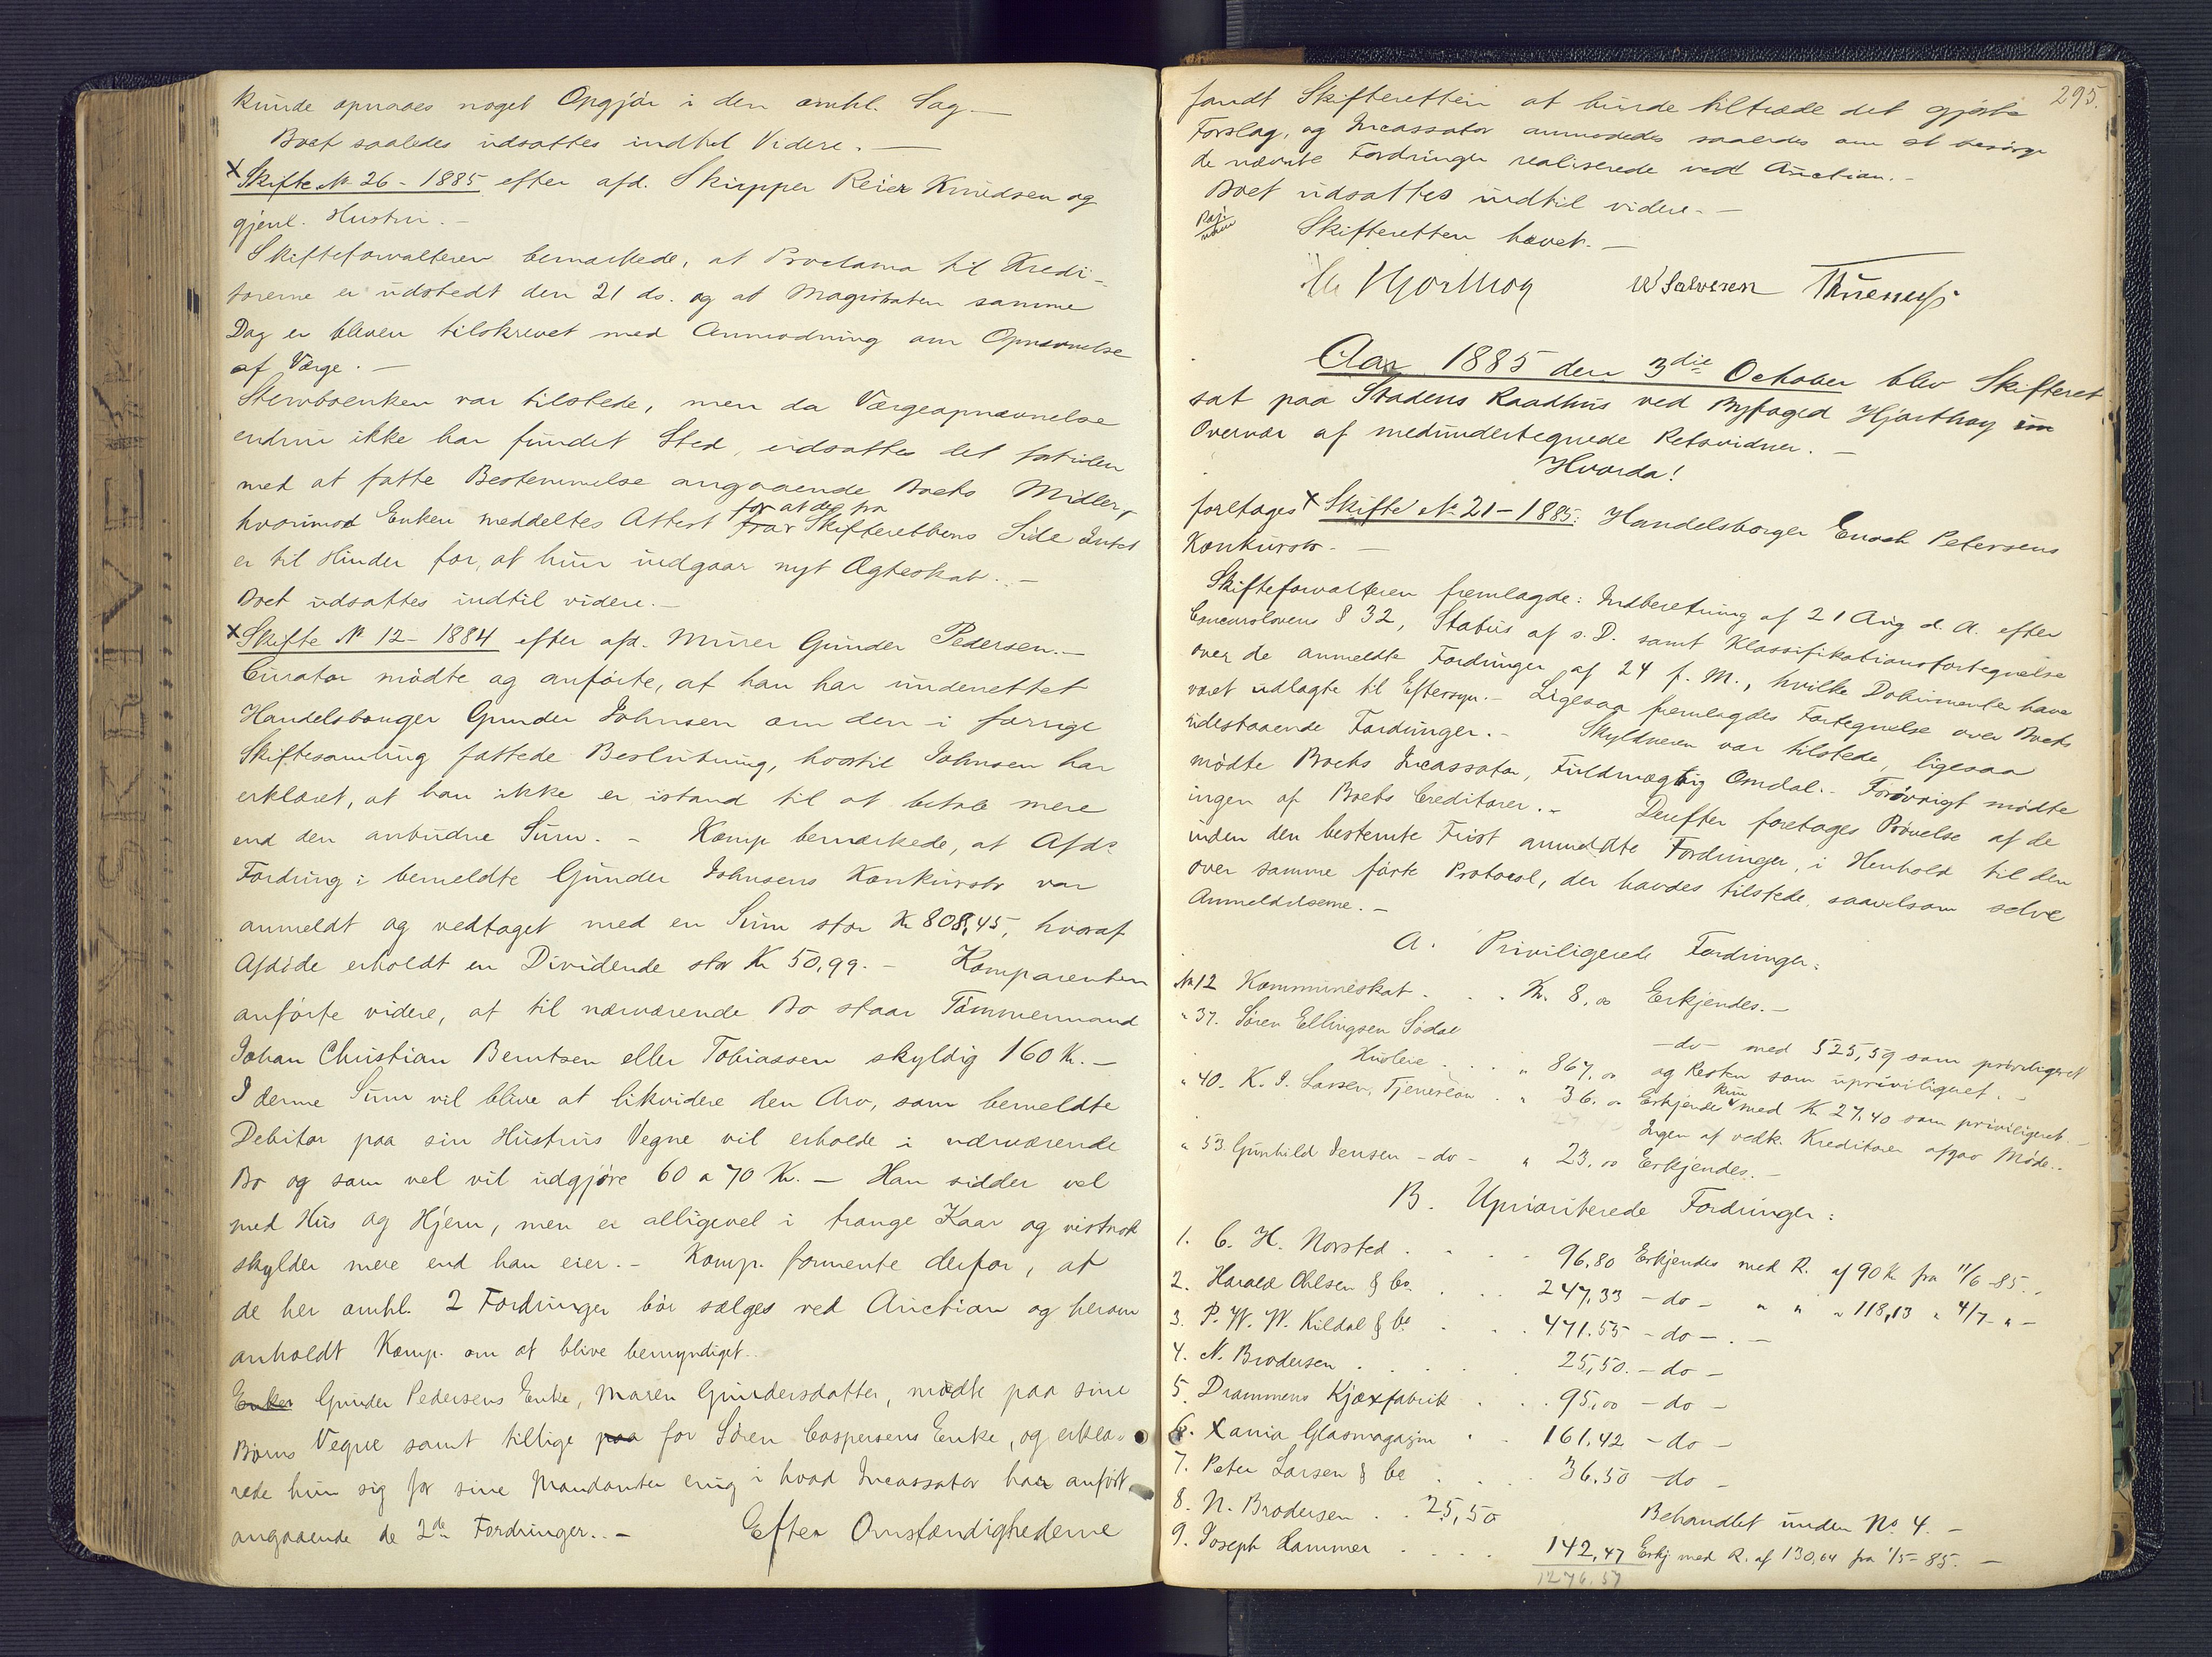 kunde opnaaes noget Opgjör i den omhl. Sag. —
Boet saaledes udsattes indtil Videre. —
x Skifte No 26 - 1885 efter afd. Skipper Reier Knudsen og
gjenl. Hustru. —
Skifteforvalteren bemærkede, at Proclama til Kredi-
torerne er udstedt den 21 ds. og at Magistraten samme
Dag er bleven tilskrevet med Anmodning om Opnævnelse
af Værge. —
Stervboenken var tilstede, men da Værgeopnævnelse
endnu ikke har fundet Sted, udsattes det fortiden
med at fatte Bestemmelse angaaende Boets Midler,
hvorimod Enken meddeltes Attest for at der fra Skifterettens Side Intet
er til Hinder for, at hun indgaar nyt Ægteskab. . —
Boet udsattes indtil videre. —
x Skifte No 12 - 1884 efter afd. Murer Gunder Pedersen. —
Curator mödte og anförte, at han har underrettet
Handelsborger Gunder Johnsen om den i forrige
Skiftesamling fattede Beslutning, hvortil Johnsen har
erklæret, at han ikke er istand til at betale mere
end den anbudne Sum. - Komp bemærkede, at Afds
Fordring i bemeldte Gunder Johnsens Konkursbo var
anmeldt og vedtaget med en Sum stor Kr 808,45, hvoraf
Afdöde erholdt en Dividende stor Kr 50,99. - Komparenten
anförte videre, at til nærværende Bo staar Tömmermand
Johan Christian Berntsen eller Tobiassen skyldig 160 Kr. —
I denne Sum vil blive at likvidere den Arv, som bemeldte
Debitor paa sin Hustrus Vegne vil erholde i nærværende
Bo og som vel vil udgjöre 60 a 70 Kr. — Han sidder vel
med Hus og Hjem, men er alligevel i trange Kaar og vistnok
skylder mere end han eier. - Komp. formente derfor, at
de her omhl. 2 Fordringer bör sælges ved Auction og herom
anholdt Komp. om at blive bemyndiget. .
Enken Gunder Pedersens Enke, Maren Gundersdatter, mödte paa sine
Börns Vegne samt tillige paa for Sören Caspersens Enke, og erklæ-
rede hun sig for sine Mandanter enig i hvad Incassator har anfört
angaaende de 2de Fordringer. . — Efter Omstændighederne
295.
fandt Skifteretten at burde tiltræde det gjorte
Forslag, og Incassator anmodedes saaledes om at besörge
de nævnte Fordringer realiserede ved Auction. -
Boet udsattes indtil videre. —
Skifteretten hævet. —
Hjorthoy W Salvesen
Aar 1885 den 3die October blev Skifteret
sat paa Stadens Raadhus ved Byfoged Hjorthoy im
Overvær af medundertegnede Retsvidner. —
Hvorda!
foretages x Skifte No 21 - 1885: Handelsborger Enoch Petersens
Konkursbo. —
Skifteforvalteren fremlagde: Indberetning af 21 Aug d. A. efter
Concurslovens § 32, Status af s. D. samt Klassifikationsfortegnelse
over de anmeldte Fordringer af 24 f. M., hvilke Dokumenter have
været udlagte til Eftersyn. - Ligesaa fremlagdes Fortegnelse over Boets
udestaaende Fordringer. - Skyldneren var tilstede, ligesaa
mödte Boets Incassator, Fuldmægtig Omdal. - Forövrigt mödte
ingen af Boets Creditorer. - Derefter foretoges Prövelse af de
inden den bestemte Frist anmeldte Fordringer, i Henhold til den
over samme förte Protocol, der havdes tilstede, saavelsom selve
Anmeldelserne. -
A. Priviligerede Fordringer:
No 12 Kommuneskat . . . Kr. 8,00 Erkjendes. —
" 37. Sören Ellingsen Södal
Husleie . . . " 867,00 - do - med 525,59 som priviligeret
og Resten som upriviligeret. -
" 40. K. J. Larsen, Tjenerlön . " 36,00 Erkjendes kun med Kr 27,40 som priviligeret. -
Ingen af vedk. Kreditorer afgav Möde. -
" 53. Gunhild Jensen - do - " 23,00 Erkjendes. —
B. Uprioriterede Fordringer:
1. C. H. Norsted . . . . 96,80 Erkjendes med R. af 90 Kr fra 11/6 - 85. -
2. Harald Ohlsen & Co. . . . 247,33 - do - " " " 118,13 " 4/7 - " —
3. P. W. W. Kildal & Co . . . 471.55 - do - . —
4. N. Brodersen . . . . 25,50. - do -
5. Drammens Kjæxfabrik . . . 95,00 - do -
6. Xania Glasmagasin . 161,42 - do -
7. Peter Larsen & Co . . . 36.50 - do -
8. N. Brodersen . . 25,50 Behandlet under No 4. -
9. Joseph Hammer . . . . 142,47 Erkj med R. af 130,64 fra 1/5 - 85. —
1276.57